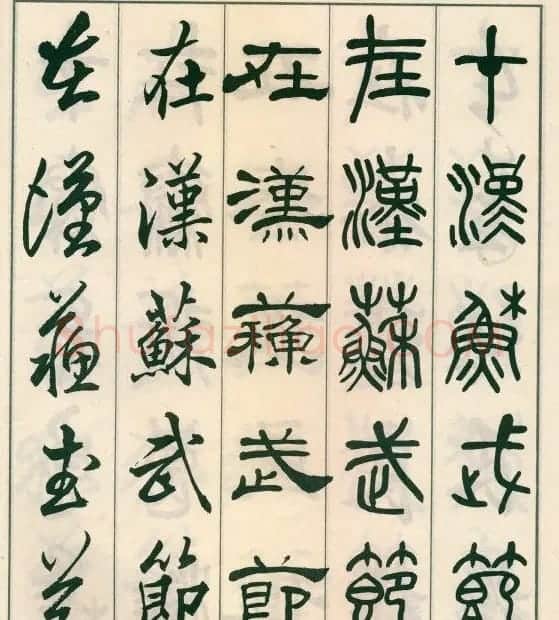 在漢蘇武節
在漢蘇武節
在漢蘇武節
在漢蘇武節
在漢蘇武